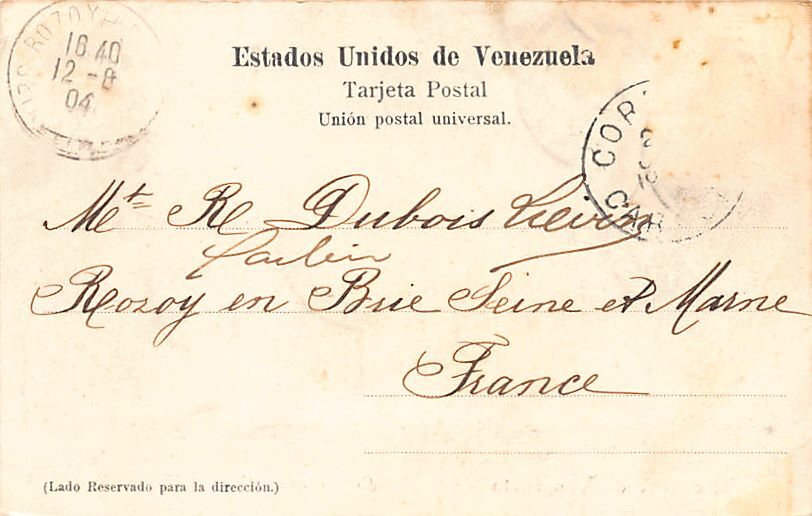 ROZOY
16 40
12 - 8
04
Estados Unidos de Venezuela
Tarjeta Postal
Unión postal universal.
COR
CAR
Met R Dubois
Rozoy en Brie Seine et Marne
France
(Lado Reservado para la dirección.)